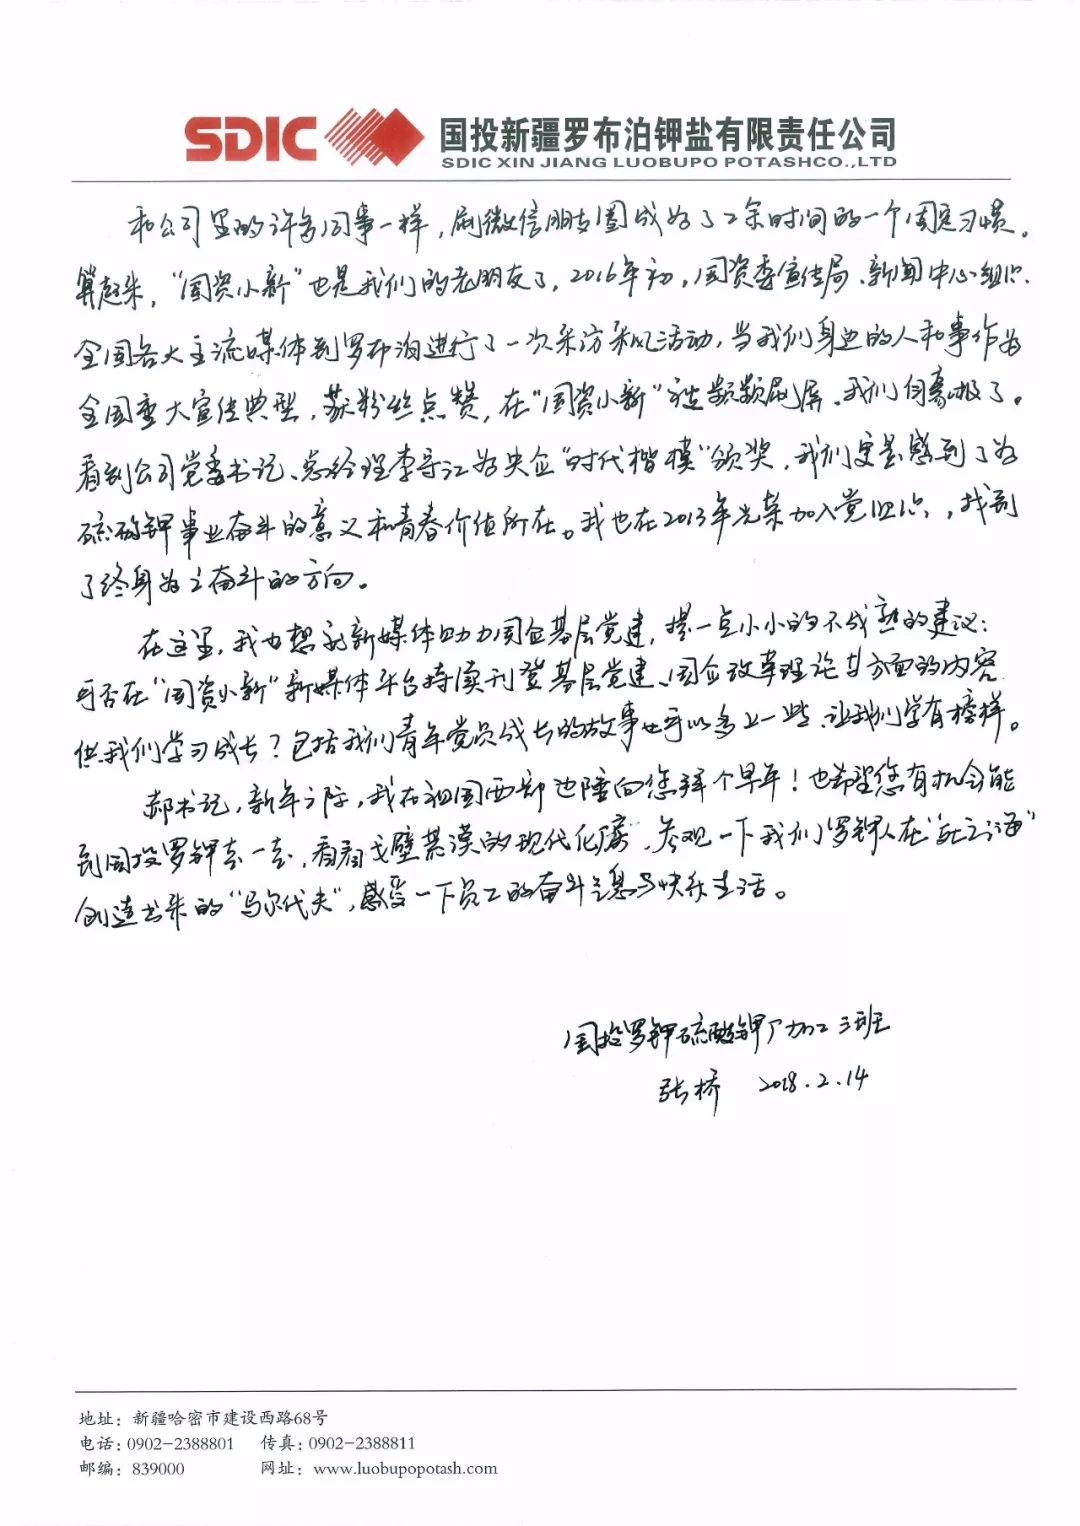 SDIC 国投新疆罗布泊钾盐有限责任公司
SDIC XIN JIANG LUOBUPO POTASHCO.,LTD
和公司里的许多同事一样，刷微信朋友圈成为了工余时间的一个固定习惯。
算起来，“国资小新”也是我们的老朋友了，2016年初，国资委宣传局、新闻中心组织
全国各大主流媒体到罗布泊进行了一次采访采风活动，当我们身边的人和事作为
全国重大宣传典型，获粉丝点赞，在“国资小新”频频刷屏，我们自豪极了。
看到公司党委书记、总经理李守江为央企“时代楷模”颁奖，我们更是感到了为
硫酸钾事业奋斗的意义和青春价值所在。我也在2013年光荣加入党组织，找到
了终身为之奋斗的方向。
在这里，我也想就新媒体助力国企基层党建，提一点小小的不成熟的建议：
可否在“国资小新”新媒体平台持续刊登基层党建、国企改革理论等方面的内容
供我们学习成长？包括我们青年党员成长的故事也可以多上一些，让我们学有榜样。
郝书记，新年之际，我在祖国西部边陲向您拜个早年！也希望您有机会能
到国投罗钾走一走，看看戈壁荒漠的现代化厂房，参观一下我们罗钾人在“死亡之海”
创造出来的“马尔代夫”，感受一下员工的奋斗气息与快乐生活。
国投罗钾硫酸钾厂加工三班
张桥 2018.2.14
地址：新疆哈密市建设西路68号
电话：0902-2388801 传真：0902-2388811
邮编：839000 网址：www.luobupopotash.com